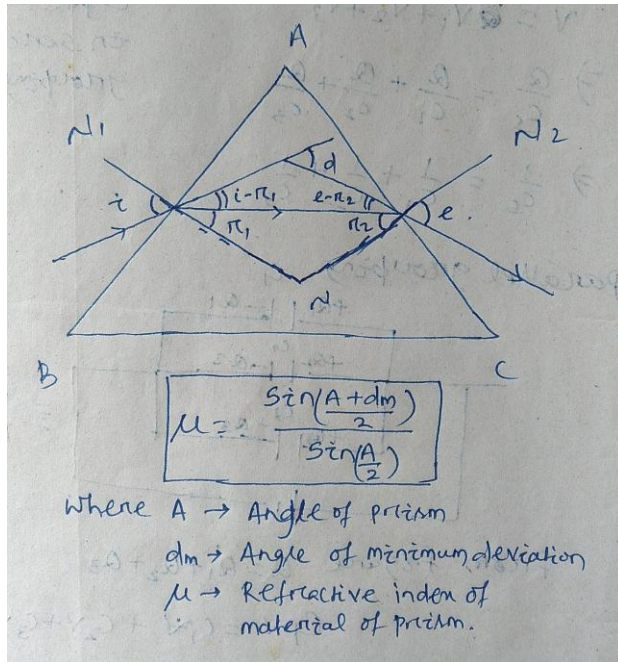 A
N1
N2
d
i
i-r1
e-r2
r1
r2
e.
N
B
C
μ = sin(A+dm/2) / sin(A/2)
where A → Angle of prism
dm → Angle of minimum deviation
μ → Refractive index of
material of prism.